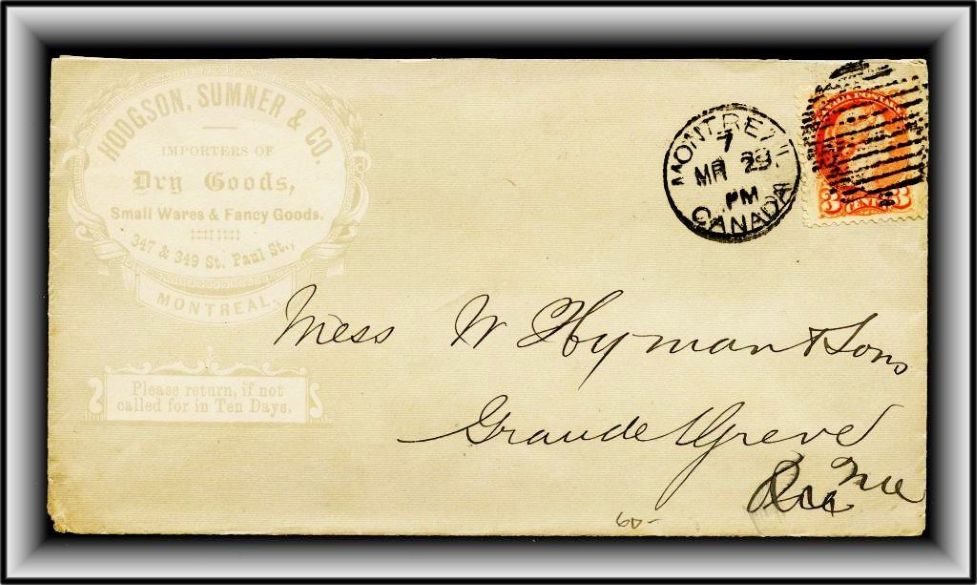 HODGSON, SUMNER & CO.
IMPORTERS OF
Dry Goods,
Small Wares & Fancy Goods.
347 & 349 St. Paul St.,
MONTREAL.
Please return, if not
called for in Ten Days.
MONTREAL
7
MR 29
PM
CANADA
CANADA POSTAGE
3 CENTS 3
Mess W Hyman & Sons
Grande Greve
Que
60-